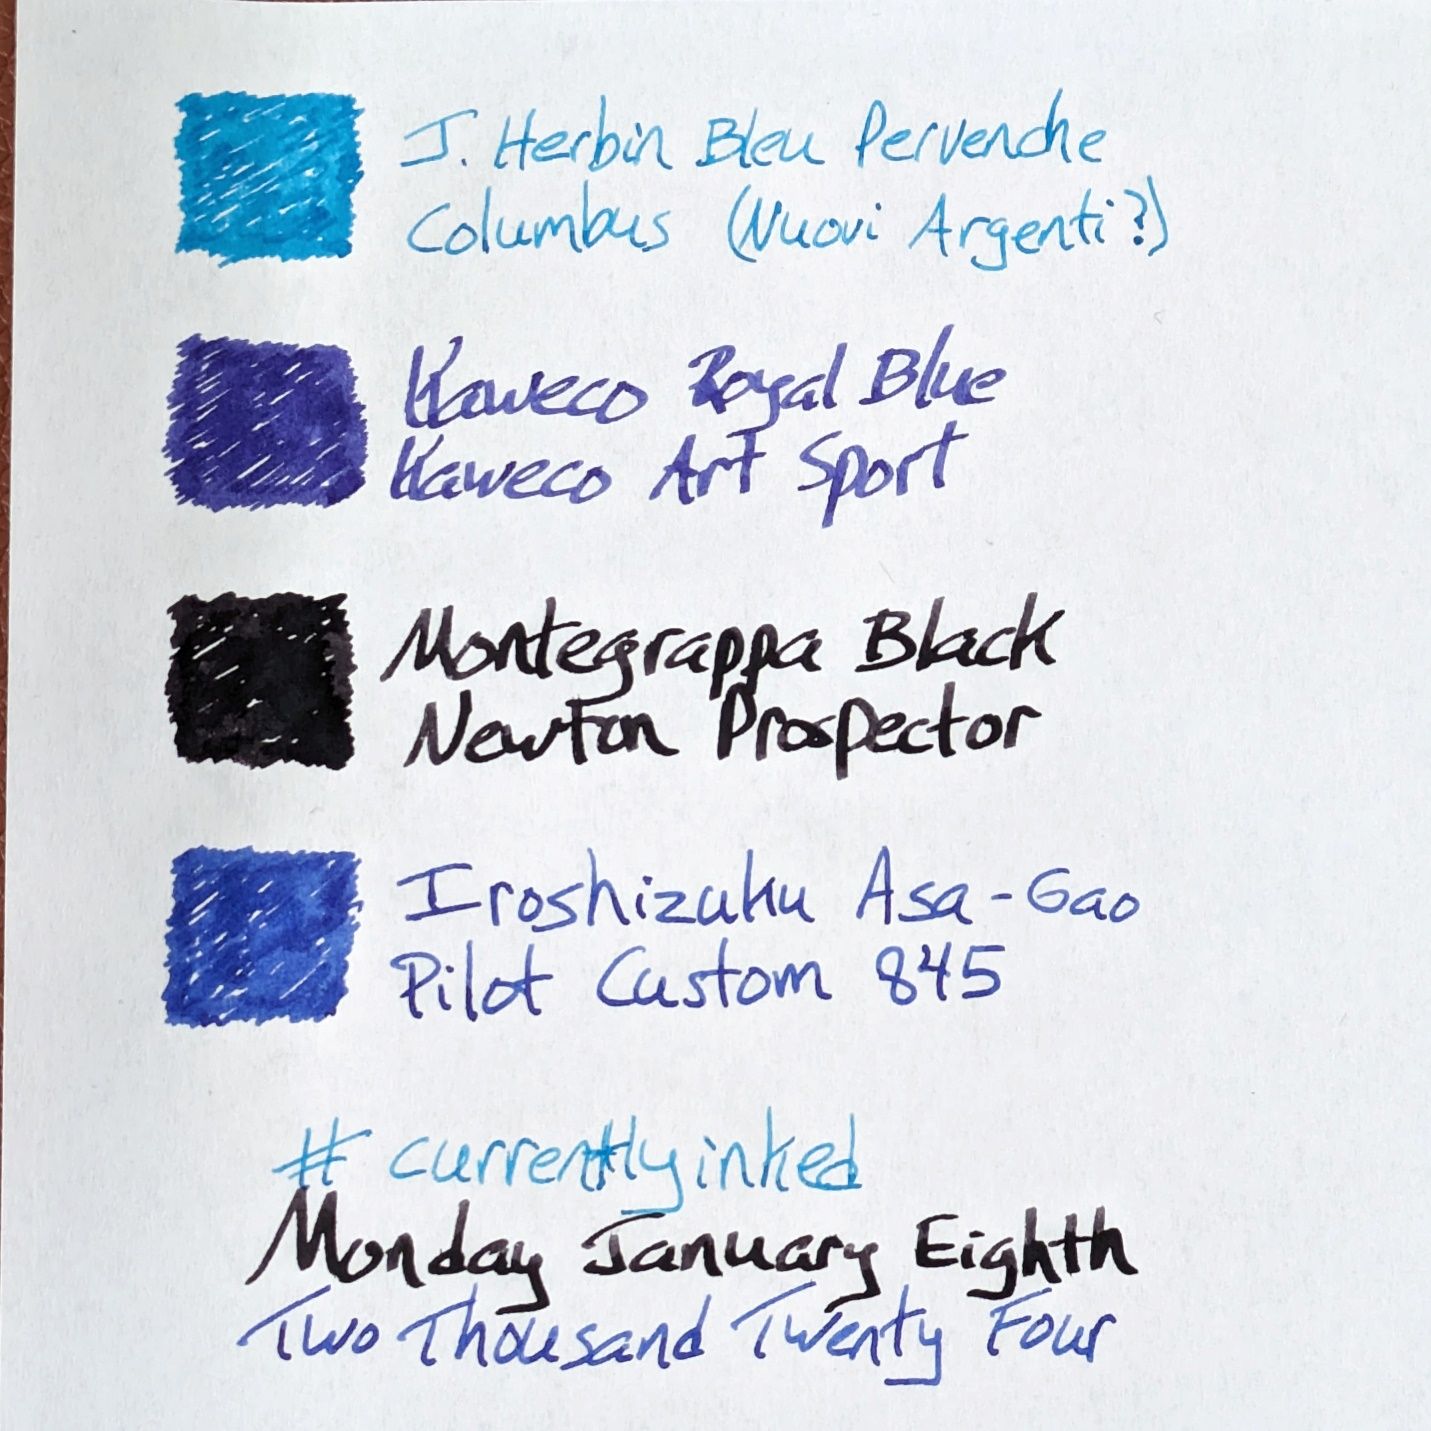 J. Herbin Bleu Pervenche
Columbus (Nuovi Argenti?)
Kaweco Royal Blue
Kaweco Art Sport
Montegrappa Black
Newton Prospector
Iroshizuku Asa-Gao
Pilot Custom 845
# currentlyinked
Monday January Eighth
Two Thousand Twenty Four